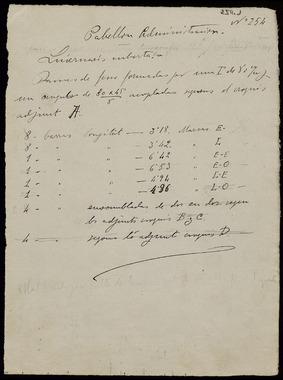 Nº 254
Pabellon Administracion.
Llucernari cuberta
Barras de ferro formadas per una T de
un angular de 80 x 45 / 5 acopladas segons el croquis
adjunt A.
8 - barras longitut - 3'18. Marcas E-
8 " " - 3'42. " L
1 " " - 6'42 " E-E
1 " " - 6'53 " E-O
1 " " - 4'94 " L-E
1 " " - 4'96 " L-O
4 - ensambladas de dos en dos segons
los adjunts croquis B y C.
4 - segons lo adjunt croquis D